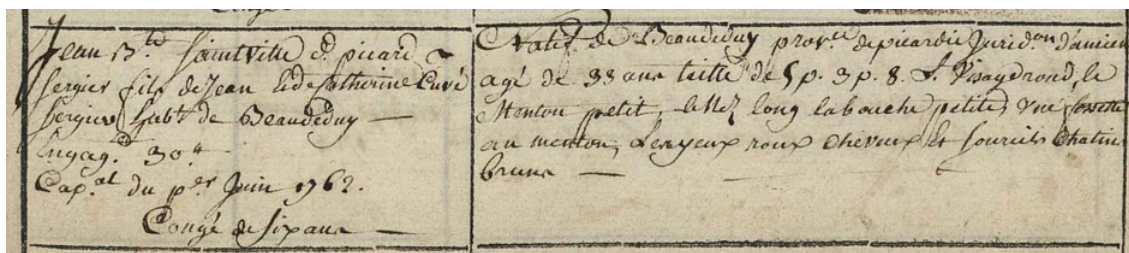 Jean B.te Saintville d. picard
Sergier fils de Jean et de Catherine Curé
Sergier habt. de Beaudeduy
Engag.t 30 #
Cap.al du p.er Juin 1762.
Congé de Six ans
Natif de Beaudeduy prov.ce de picardie Jurid.on d'amien
agé de 33 ans taille de 5 p. 3 p. 8. L. Visage rond, le
Menton petit, le Nez long la bouche petite, une fossette
au menton, Les yeux roux cheveux et sourcils Chatin
brune